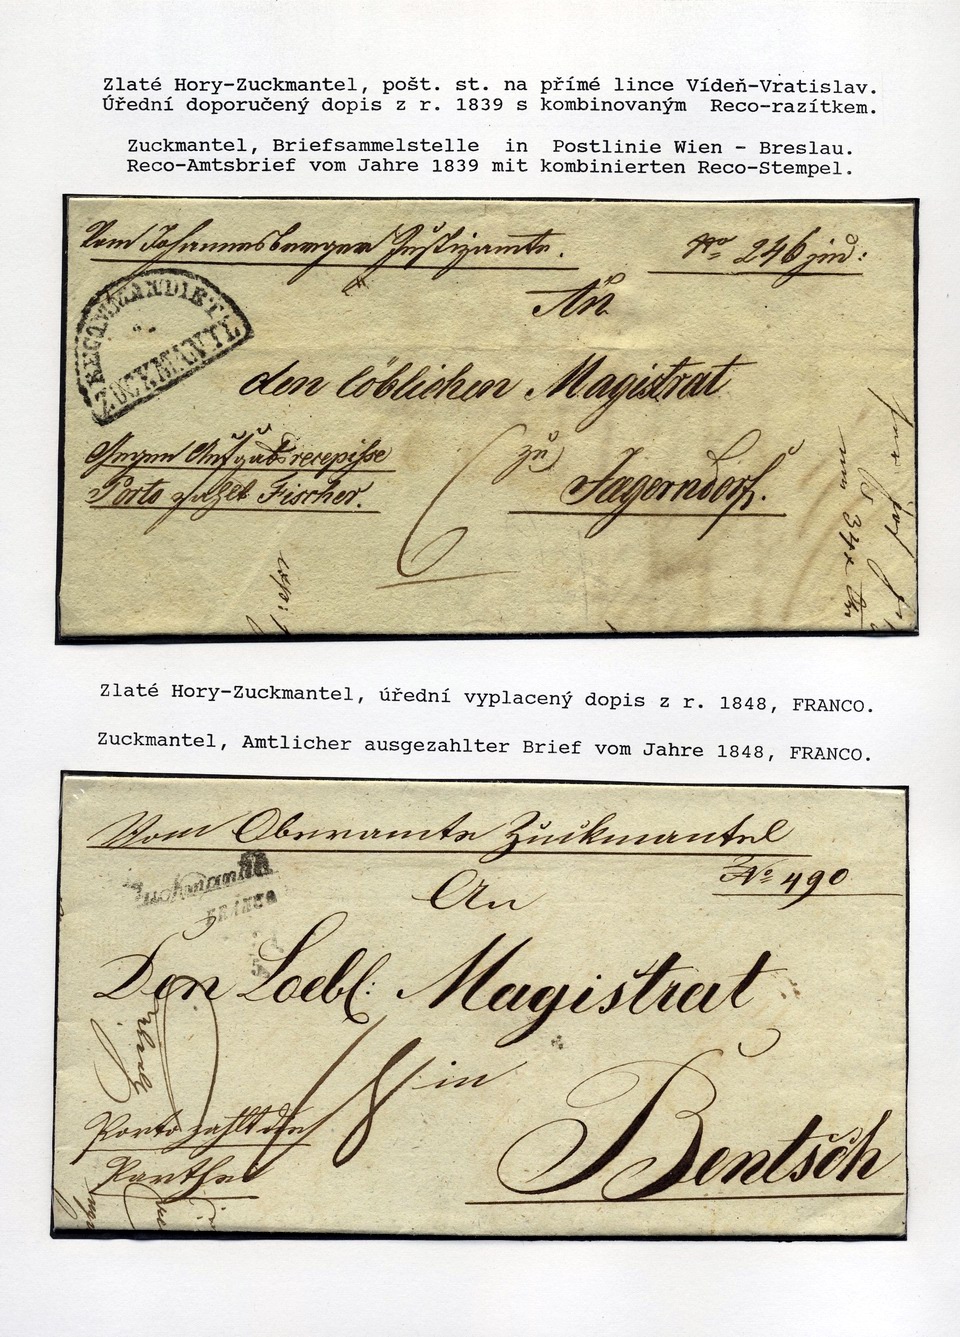 Zlaté Hory-Zuckmantel, pošt. st. na přímé lince Vídeň-Vratislav.
Úřední doporučený dopis z r. 1839 s kombinovaným Reco-razítkem.
Zuckmantel, Briefsammelstelle in Postlinie Wien - Breslau.
Reco-Amtsbrief vom Jahre 1839 mit kombinierten Reco-Stempel.
Vom Johannesberger Justizamte.
No 246 jud:
An
RECOMMANDIRT
ZUCKMANTL
den löblichen Magistrat
Gegen Aufgabsrecepisse
zu
Porto zahlt Fischer.
Jägerndorf.
6
Zlaté Hory-Zuckmantel, úřední vyplacený dopis z r. 1848, FRANCO.
Zuckmantel, Amtlicher ausgezahlter Brief vom Jahre 1848, FRANCO.
Vom Oberamte Zuckmantel
No 490
Zuckmantel
FRANCO
An
Den Loebl: Magistrat
in
Porto zahlt die
Parthei
Bentsch